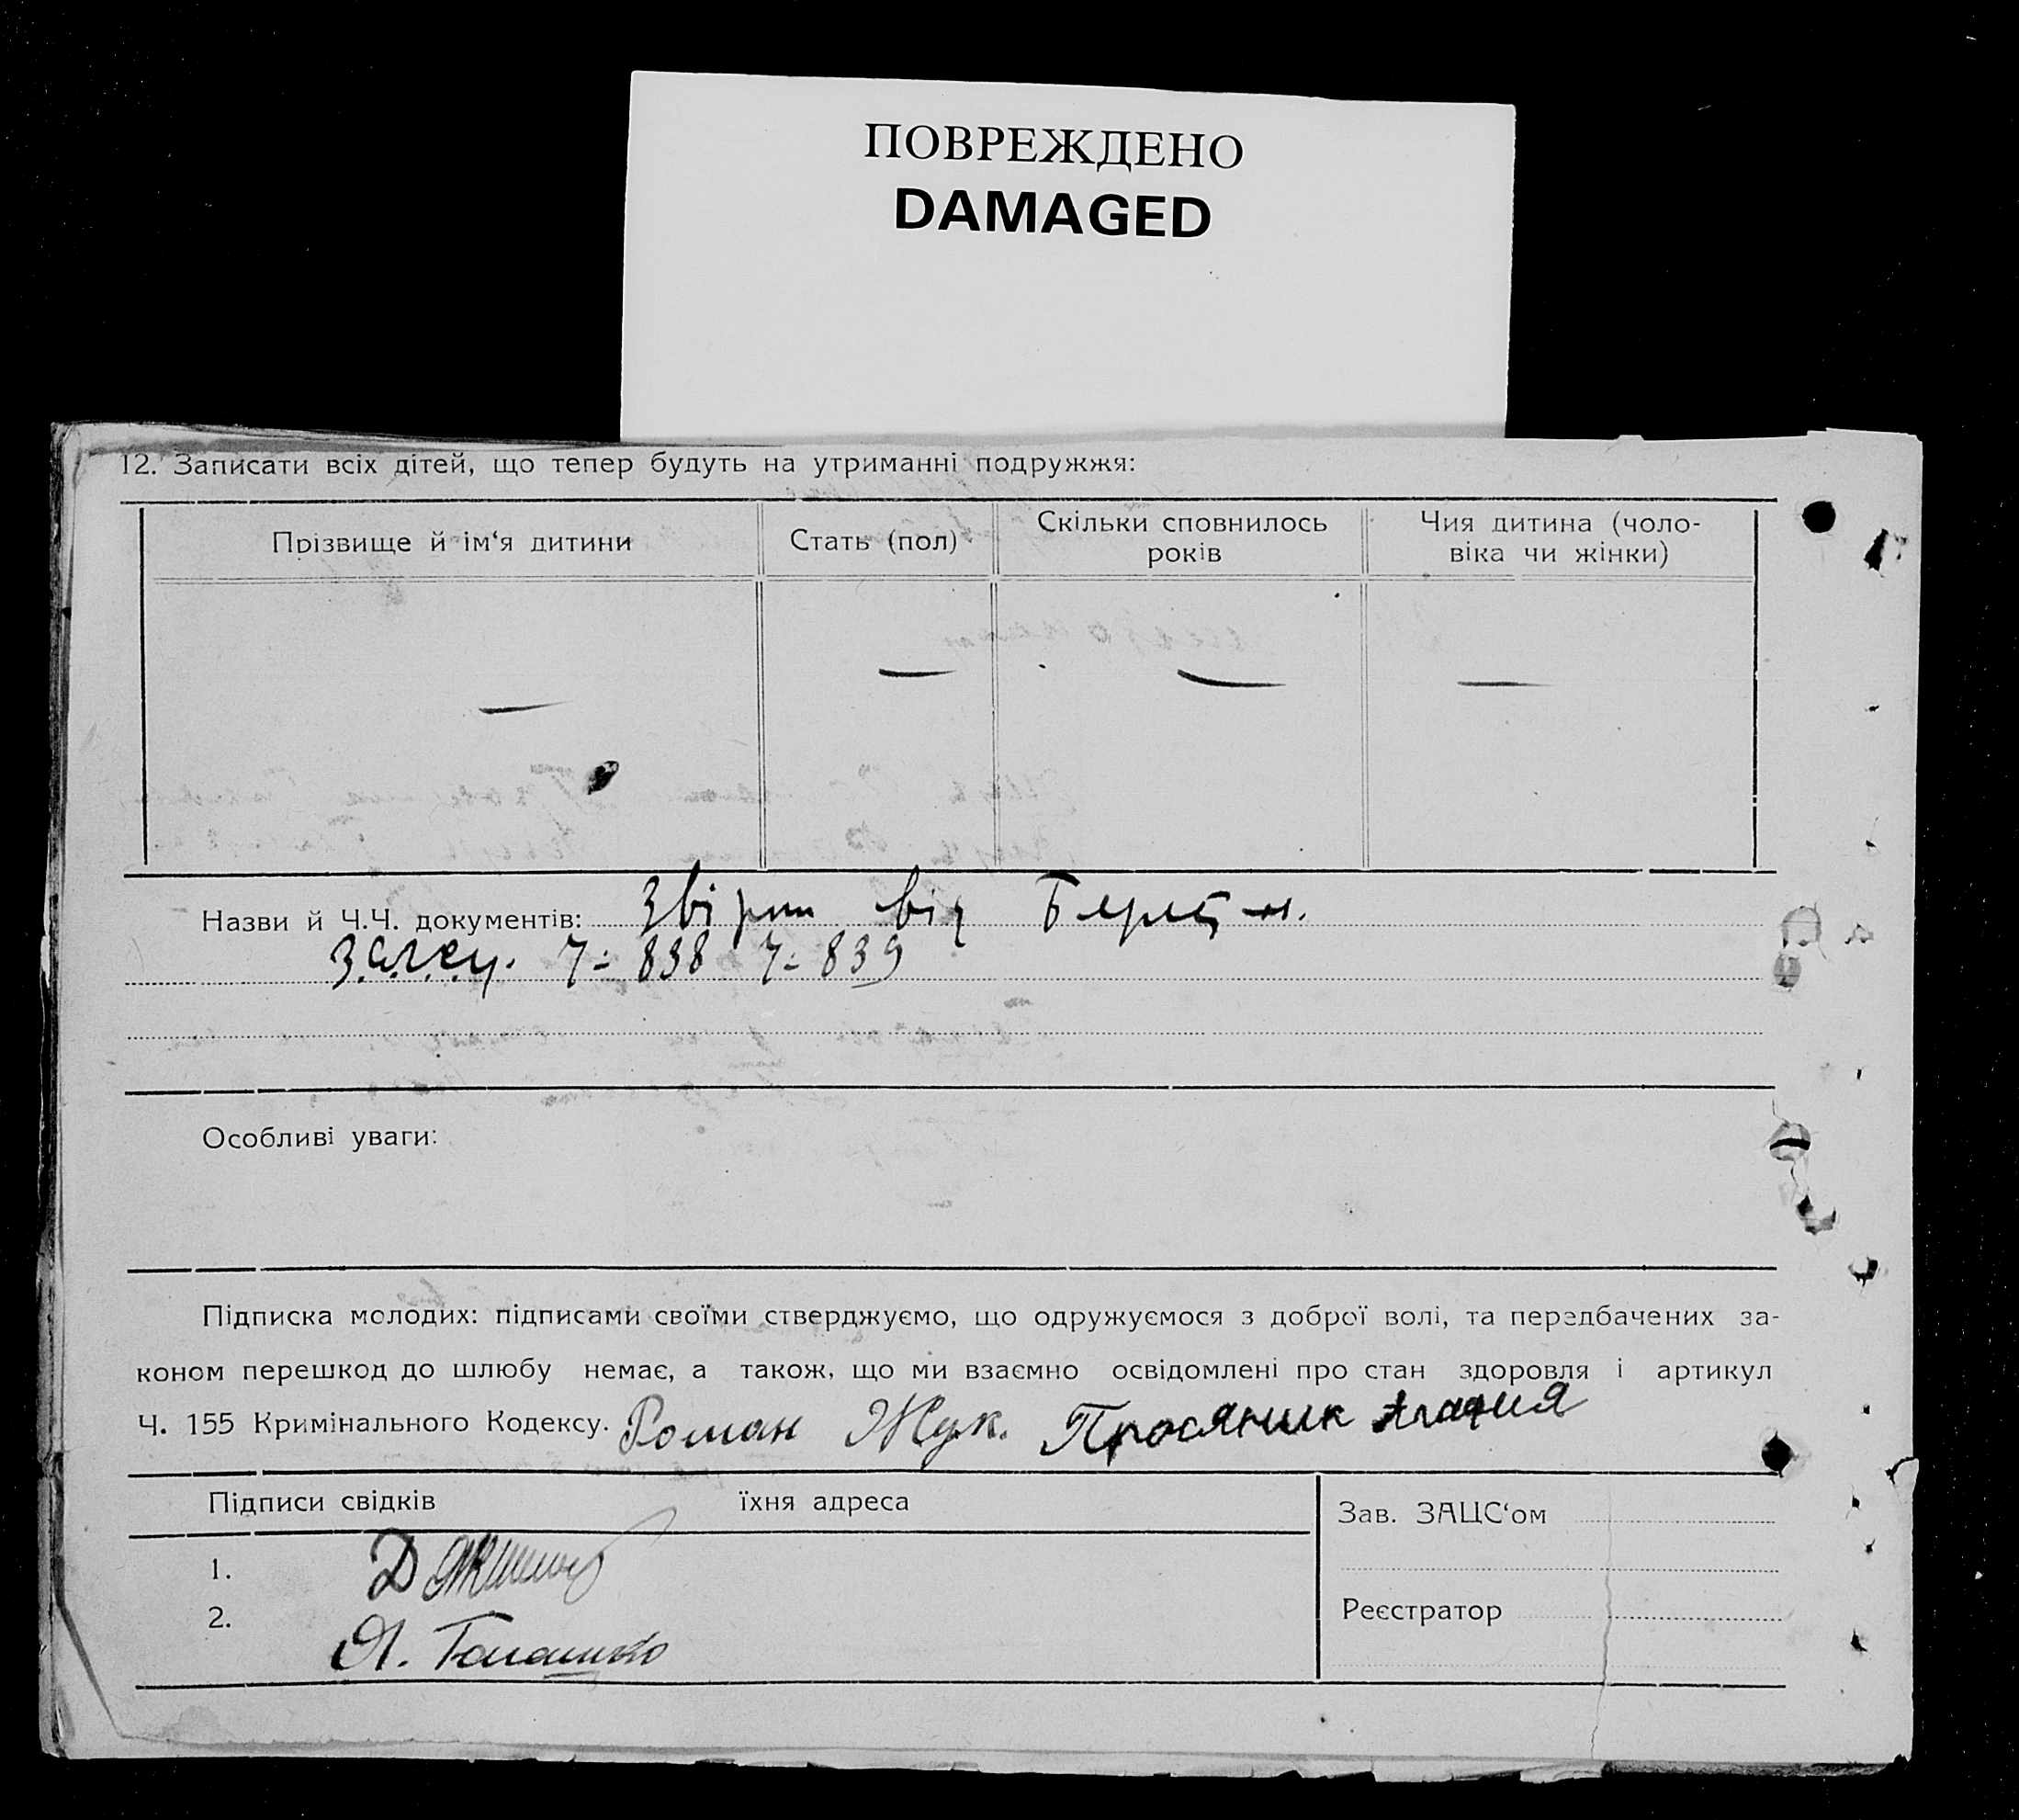 ПОВРЕЖДЕНО
DAMAGED
12. Записати всіх дітей, що тепер будуть на утриманні подружжя:
Прізвище й ім‘я дитини
Стать (пол)
Скільки сповнилось
років
Чия дитина (чоло-
віка чи жінки)
— — — —
Назви й Ч.Ч. документів: від
838 839
Особливі уваги:
Підписка молодих: підписами своїми стверджуємо, що одружуємося з доброї волі, та передбачених за-
коном перешкод до шлюбу немає, а також, що ми взаємно освідомлені про стан здоровля і артикул
Ч. 155 Кримінального Кодексу. Роман Жук. Просяник Агафия
Підписи свідків їхня адреса
Зав. ЗАЦС‘ом
1.
Реєстратор
2.